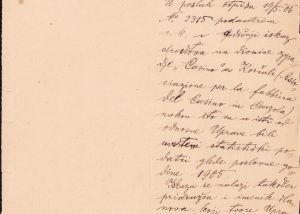 U posluh otpisa 19/5. 06
No 3315 podnastrem
s. m. u godišnji iskaz
društva na dionice zgra-
dje „Casino" u Korčuli (Asso-
ciazione per la fabbrica
del Casino in Curzola)
nakon što su isti od
odnosne Uprave bili
statistički po-
datci glede poslovne go-
dine 1905
Iskazu se nalazi također
pridružen i imenik čla-
nova koji tvore Upra-